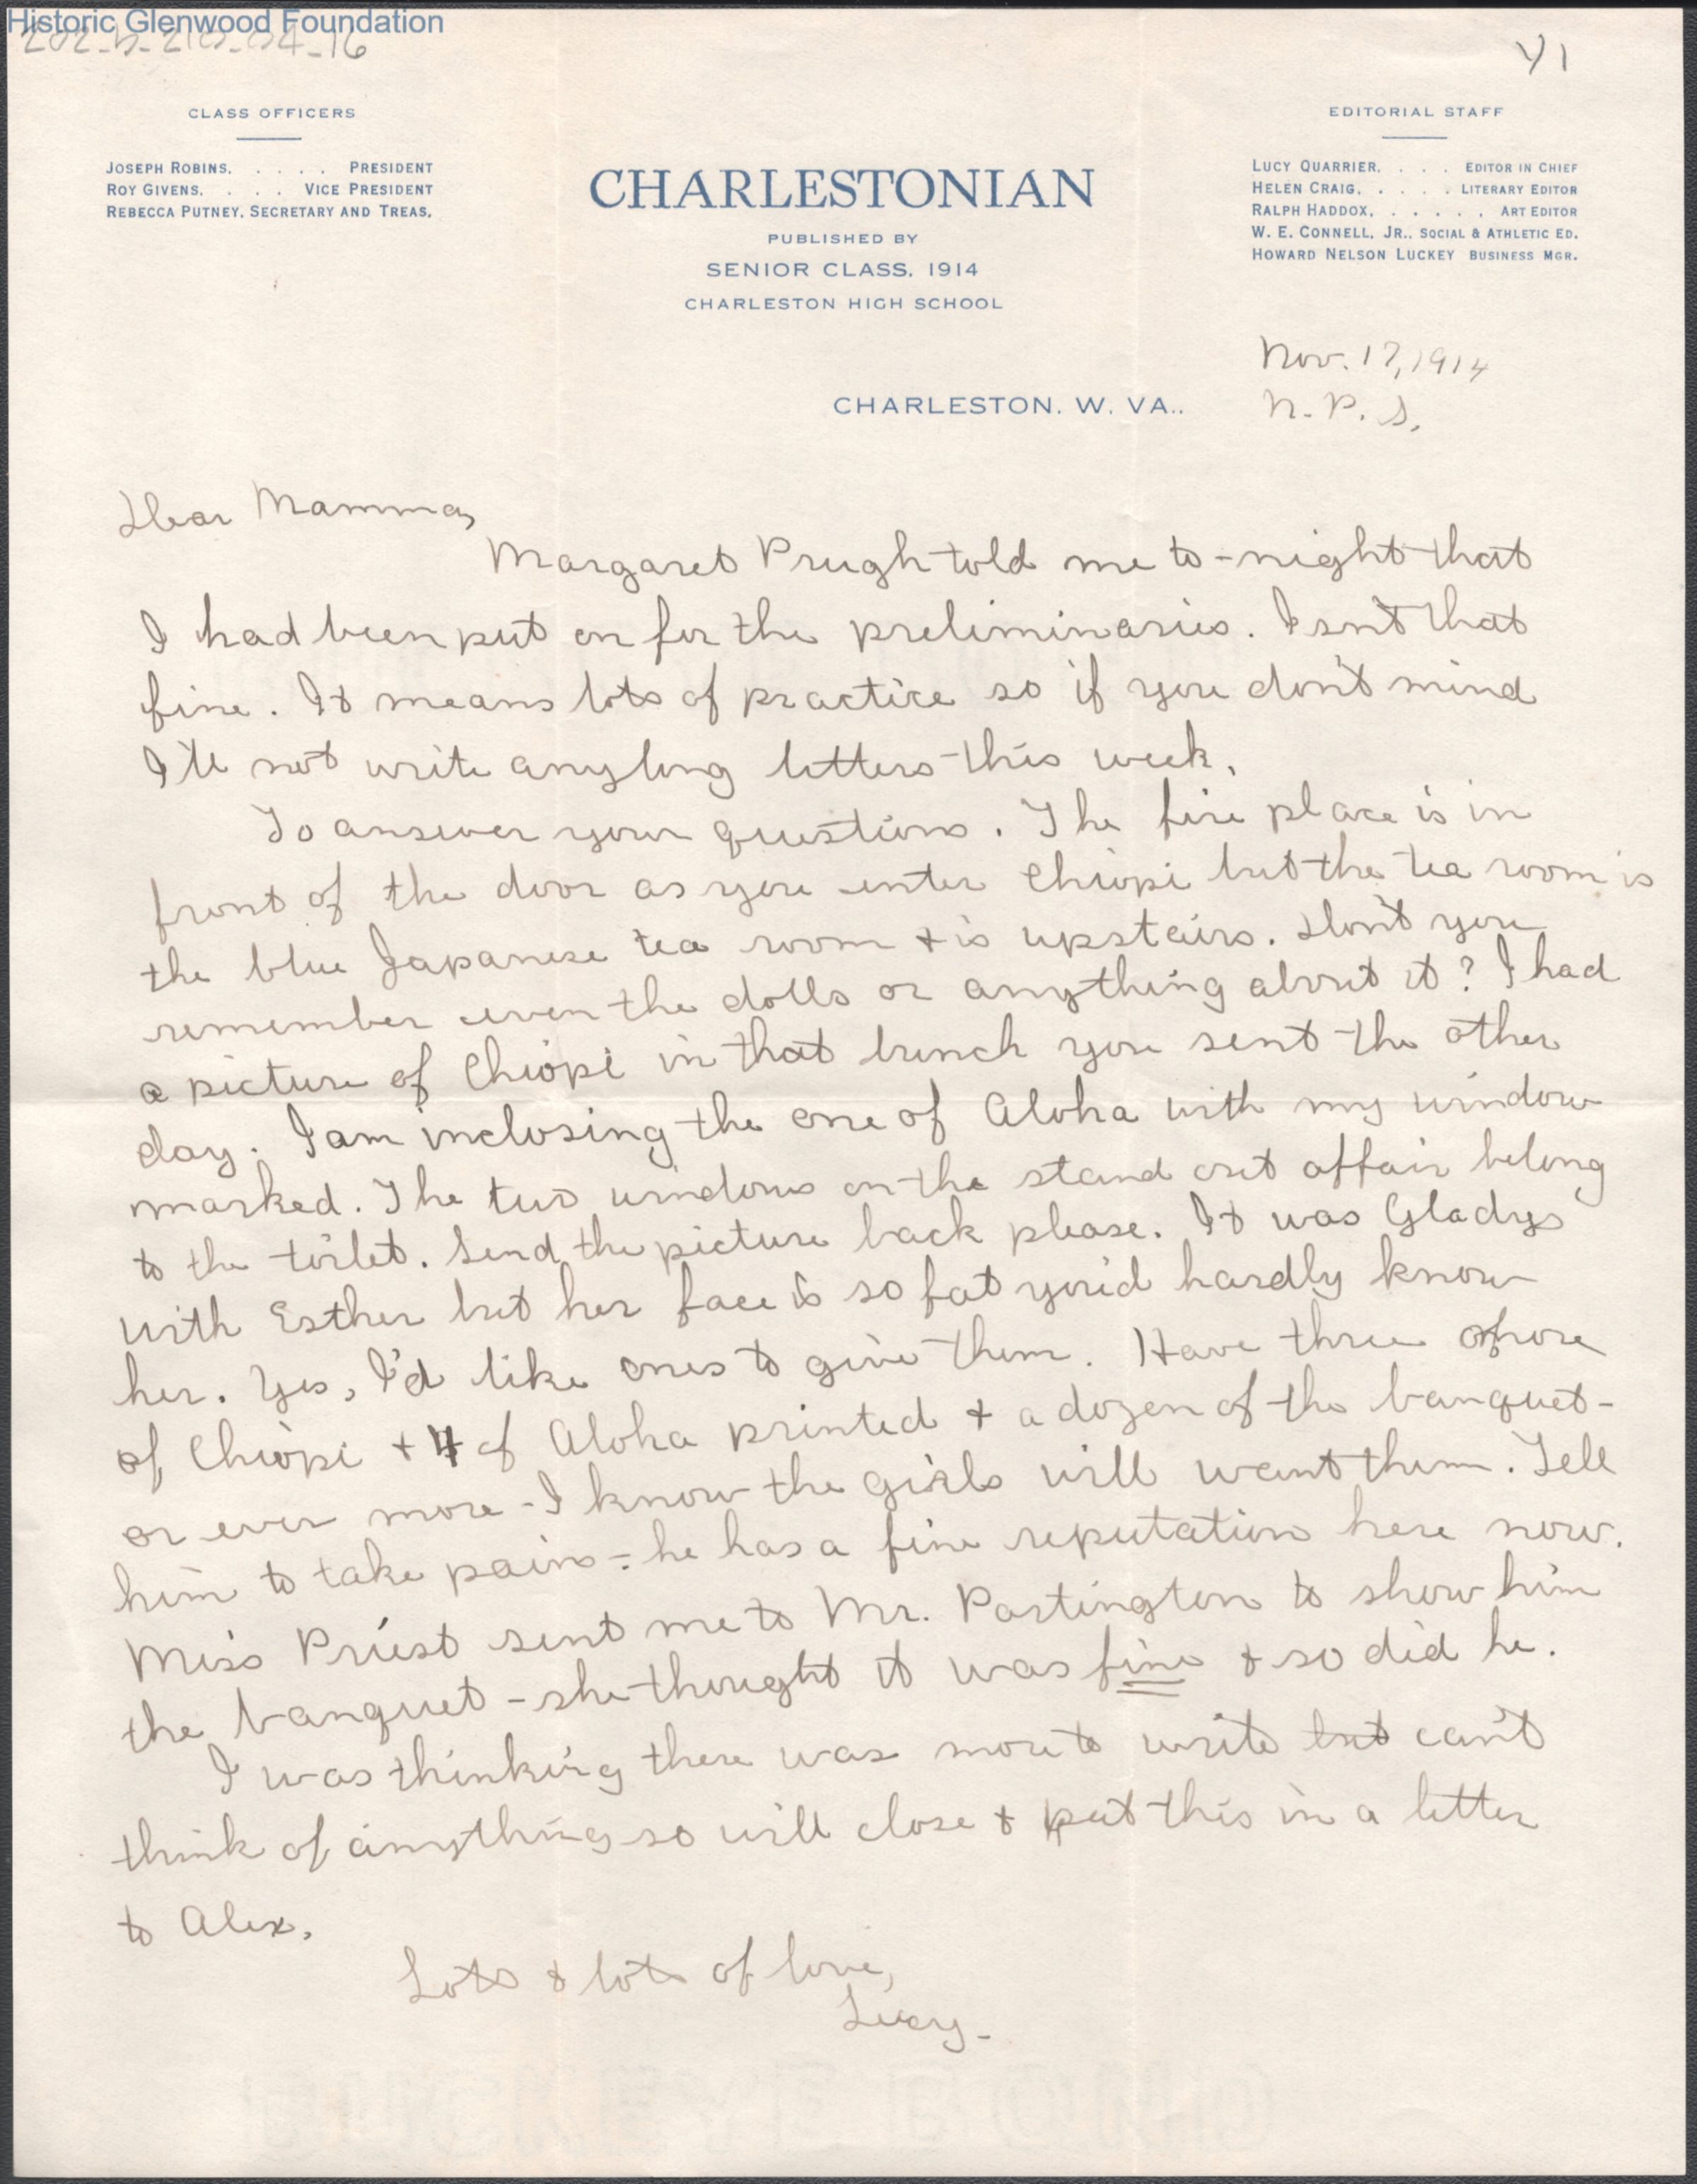 Historic Glenwood Foundation
202-b-210-04-16
CLASS OFFICERS
JOSEPH ROBINS. . . . . PRESIDENT
ROY GIVENS. . . . VICE PRESIDENT
REBECCA PUTNEY, SECRETARY AND TREAS.
CHARLESTONIAN
PUBLISHED BY
SENIOR CLASS, 1914
CHARLESTON HIGH SCHOOL
EDITORIAL STAFF
LUCY QUARRIER. . . . EDITOR IN CHIEF
HELEN CRAIG, . . . . LITERARY EDITOR
RALPH HADDOX, . . . . . ART EDITOR
W. E. CONNELL, JR., SOCIAL & ATHLETIC ED.
HOWARD NELSON LUCKEY BUSINESS MGR.
CHARLESTON, W. VA..
Nov. 17, 1914
N. P. S.
Dear Mamma,
Margaret Prugh told me to-night that
I had been put on for the preliminaries. Isn't that
fine. It means lots of practice so if you don't mind
I'll not write any long letters this week.
To answer your questions. The fire place is in
front of the door as you enter Chiopi but the tea room is
the blue Japanese tea room + is upstairs. Don't you
remember even the dolls or anything about it? I had
a picture of Chiopi in that bunch you sent the other
day. I am inclosing the one of Aloha with my window
marked. The two windows on the stand out affair belong
to the toilet. Send the picture back please. It was Gladys
with Esther but her face is so fat you'd hardly know
her. Yes, I'd like ones to give them. Have three
of Chiopi + 4 of Aloha printed + a dozen of the banquet-
or even more - I know the girls will want them. Tell
him to take pains - he has a fine reputation here now.
Miss Priest sent me to Mr. Partington to show him
the banquet - she thought it was fine + so did he.
I was thinking there was more to write but can't
think of anything so will close + put this in a letter
to Alex.
Lots & lots of love,
Lucy-